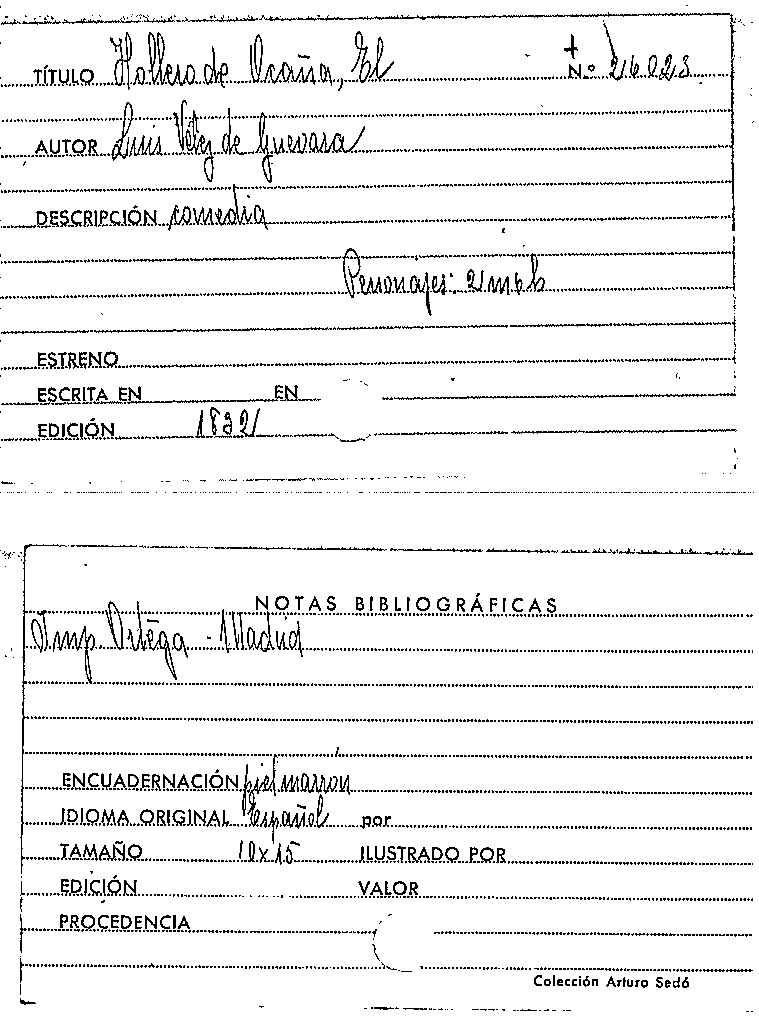 TÍTULO Hollero de Ocaña, El
+
N.º 26023
AUTOR Luis Vélez de Guevara
DESCRIPCIÓN comedia
Personajes: 21 m 6 h
ESTRENO
ESCRITA EN EN
EDICIÓN 1832
NOTAS BIBLIOGRÁFICAS
Imp. Ortega - Madrid
ENCUADERNACIÓN piel marron
IDIOMA ORIGINAL Español por
TAMAÑO 10x15 ILUSTRADO POR
EDICIÓN VALOR
PROCEDENCIA
Colección Arturo Sedó